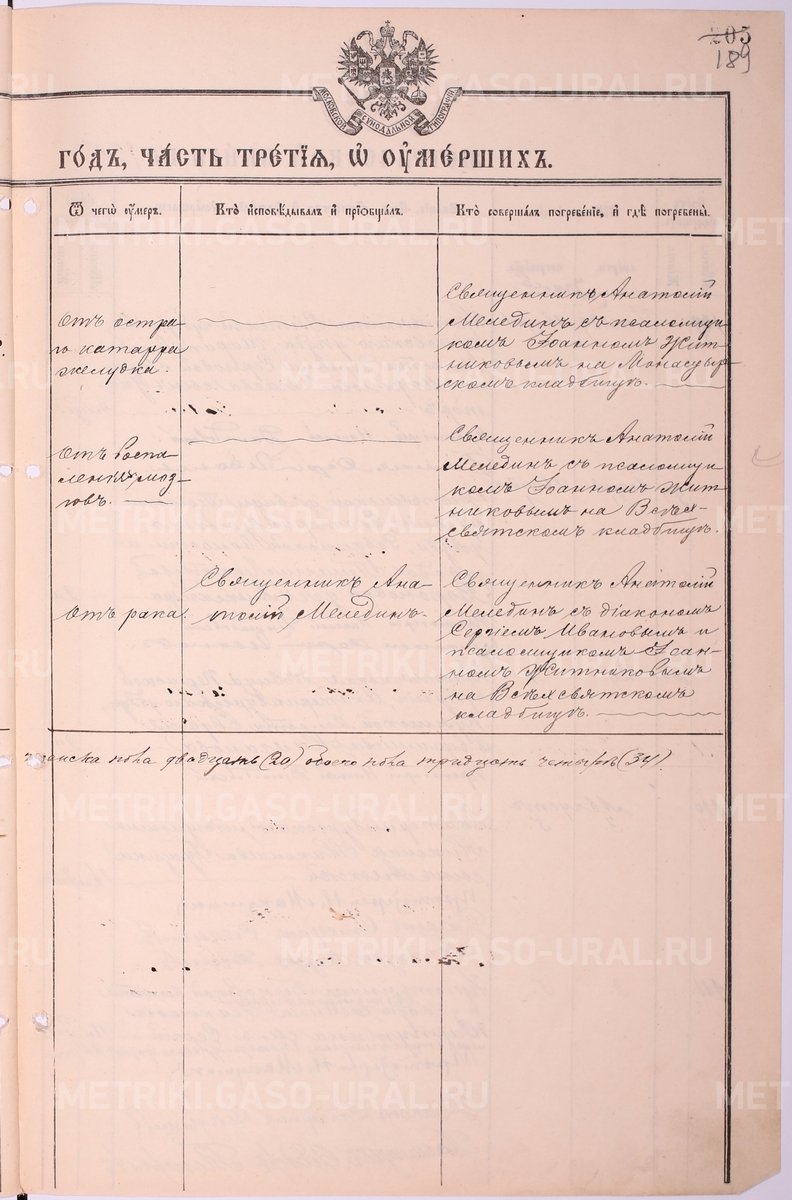 205
189
МОСКОВСКОЙ СѴНОДАЛЬНОЙ ТИПОГРАФІИ
ГО́ДЪ, ЧА́СТЬ ТРЕ́ТЇѦ, Ѡ҆ ОУ҆МЕ́РШИХЪ.
Ѿ чегѡ̀ ᲂу҆́меръ.
Кто̀ и҆сповѣ́дывалъ и҆ прїѡбща́лъ.
Кто̀ соверша́лъ погребе́нїе, и҆ гдѣ̀ погребены̀.
Отъ остра-
го катарра
желудка.
Священникъ Анатолій
Меледин съ псаломщи-
комъ Іоанномъ Жит-
никовымъ на Монастыр-
скомъ кладбищѣ.
Отъ Воспа-
ленія моз-
говъ.
Священникъ Анатолій
Мелединъ съ псаломщи-
комъ Іоанномъ Жит-
никовымъ на Всѣх-
святскомъ кладбищѣ.
Отъ рака.
Священникъ Ана-
толій Мелединъ.
Священникъ Анатолій
Мелединъ съ діакономъ
Сергіемъ Ивановымъ и
псаломщикомъ Іоан-
номъ Житниковымъ
на Всѣхсвятскомъ
кладбищѣ.
женска пола двадцать (20) обоего пола тридцать четыре (34)
METRIKI.GASO-URAL.RU